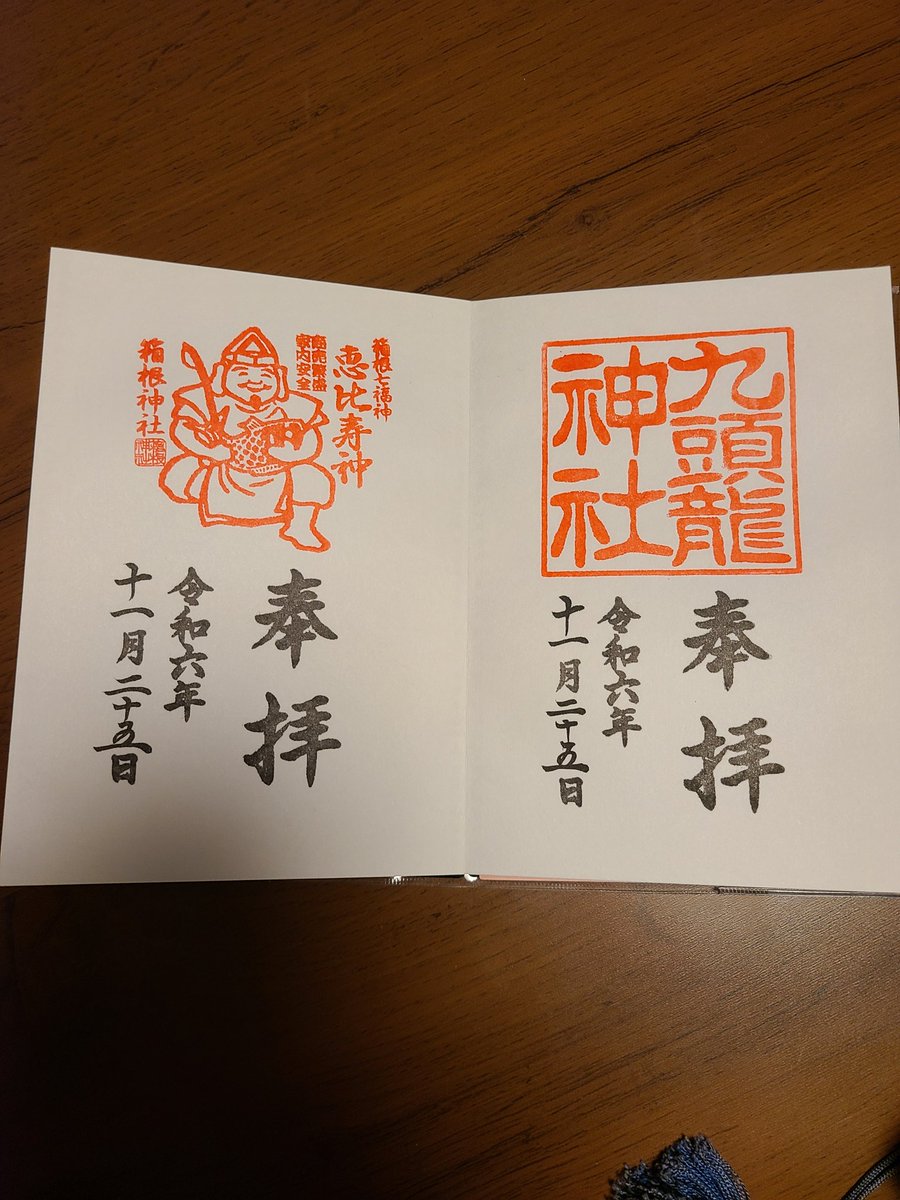 九頭龍
神社
奉拝
令和六年
十一月二十五日
箱根七福神
恵比寿神
商売繁盛
家内安全
箱根神社
奉拝
令和六年
十一月二十五日